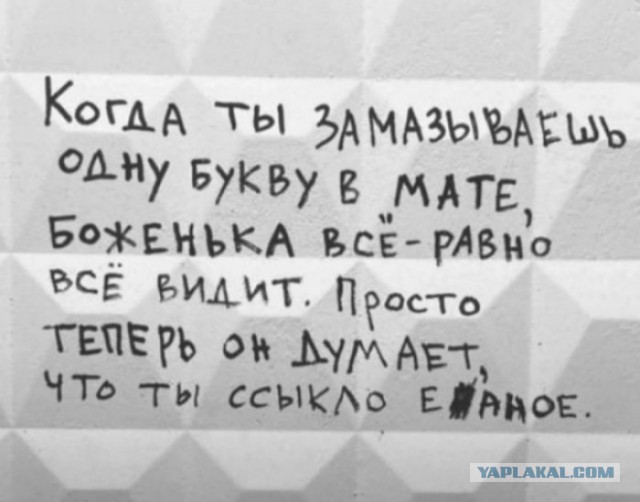 Когда ты замазываешь
одну букву в мате,
боженька всё-равно
всё видит. Просто
теперь он думает,
что ты ссыкло е█аное.
YAPLAKAL.COM